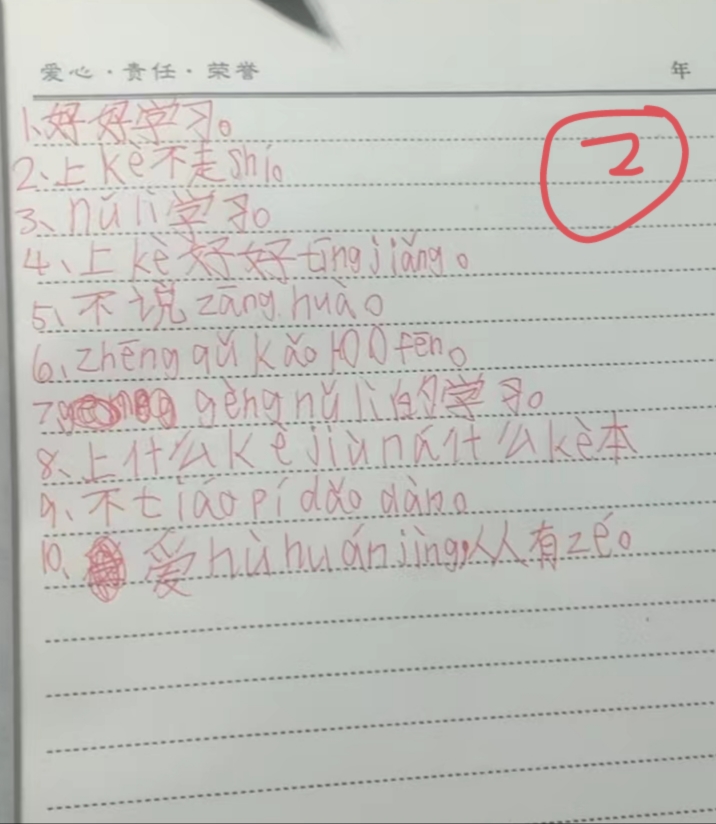 爱心·责任·荣誉 年
1、好好学习。
2、上kè不走shí。
3、nǔlì学习。
4、上kè好好tīngjiǎng。
5、不说zānghuà。
6、zhēngqǔkǎo100fēn。
7、gèngnǔlì的学习。
8、上什么kèjiùná什么kè本
9、不tiáopídǎodàn。
10、爱hùhuánjìng,人人有zé。
2